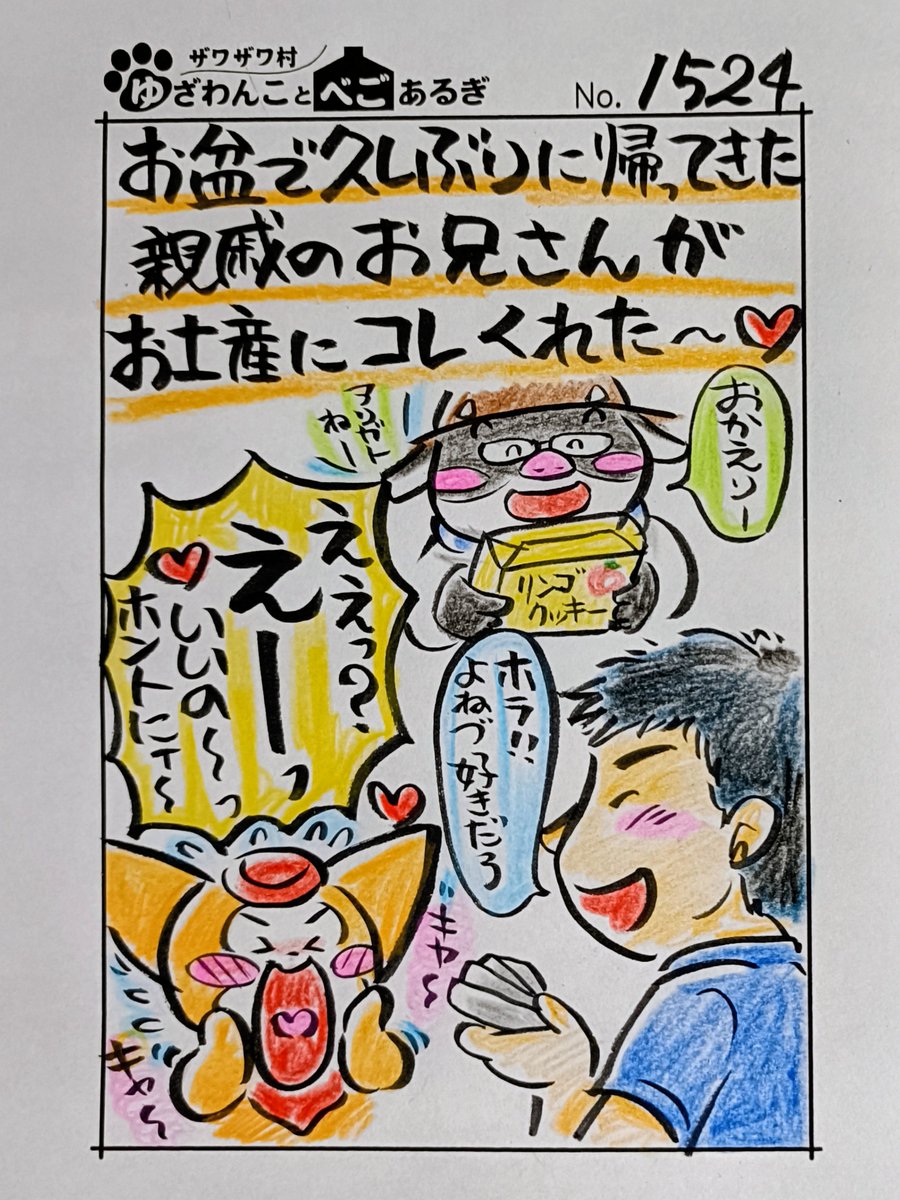 ザワザワ村
ゆざわんことべごあるぎ
No. 1524
お盆で久しぶりに帰ってきた
親戚のお兄さんが
お土産にコレくれた〜♥
おかえりー
アリガト
ねー
リンゴ
クッキー
ええっ?
えーーっ
いいの〜っ
ホントにィ〜
ホラ!!
よねづ好きだろ
キャ〜
キャ〜